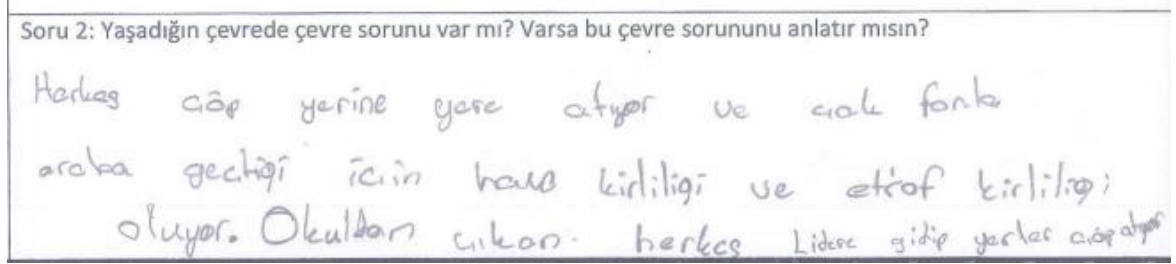 Soru 2: Yaşadığın çevrede çevre sorunu var mı? Varsa bu çevre sorununu anlatır mısın?
Herkes çöp yerine yere atıyor ve çok fazla
araba geçtiği için hava kirliliği ve etraf kirliliği
oluyor. Okuldan çıkan. herkes Lidere gidip yerler çöp atıyor